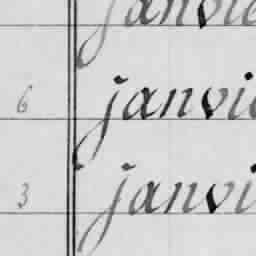 janvie
6 janvie
3 janvi